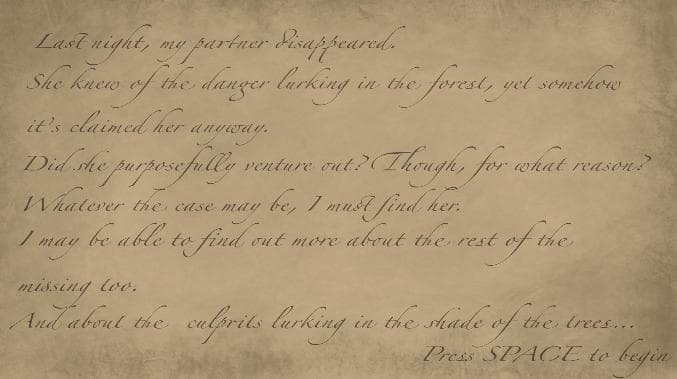 Last night, my partner disappeared.
She knew of the danger lurking in the forest, yet somehow
it's claimed her anyway.
Did she purposefully venture out? Though, for what reason?
Whatever the case may be, I must find her.
I may be able to find out more about the rest of the
missing too.
And about the culprits lurking in the shade of the trees...
Press SPACE to begin